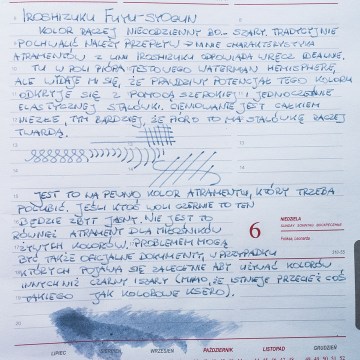 IROSHIZUKU FUYU-SYOGUN
KOLOR RACZEJ NIECODZIENNY BO... SZARY. TRADYCYJNIE
POCHWALIĆ NALEŻY PRZEPŁYW - INNE CHARAKTERYSTYKA
ATRAMENTÓW Z LINII IROSHIZUKU ODPOWIADA WRĘCZ IDEALNIE.
TU W ROLI PIÓRA TESTOWEGO WATERMAN HEMISPHERE,
ALE WYDAJE MI SIĘ, ŻE PRAWDZIWY POTENCJAŁ TEGO KOLORU
ODKRYJE SIĘ Z POMOCĄ SZEROKIEJ I JEDNOCZEŚNIE
ELASTYCZNEJ STALÓWKI. CIENIOWANIE JEST CAŁKIEM
NIEZŁE, TYM BARDZIEJ, ŻE PIÓRO TO MA STALÓWKĘ RACZEJ
TWARDĄ.
JEST TO NA PEWNO KOLOR ATRAMENTU, KTÓRY TRZEBA
POLUBIĆ. JEŚLI KTOŚ WOLI CZERNIE TO TEN
BĘDZIE ZBYT JASNY. NIE JEST TO
RÓWNIEŻ ATRAMENT DLA MIŁOŚNIKÓW
ŻYWYCH KOLORÓW. PROBLEMEM MOGĄ
BYĆ TAKŻE OFICJALNE DOKUMENTY, W PRZYPADKU
KTÓRYCH POJAWIA SIĘ ZALECENIE ABY UŻYWAĆ KOLORÓW
INNYCH NIŻ CZARNY I SZARY (MIMO, ŻE ISTNIEJE PRZECIEŻ COŚ
TAKIEGO JAK KOLOROWE KSERO).
6 NIEDZIELA
LIPIEC SIERPIEŃ WRZESIEŃ PAŹDZIERNIK LISTOPAD GRUDZIEŃ